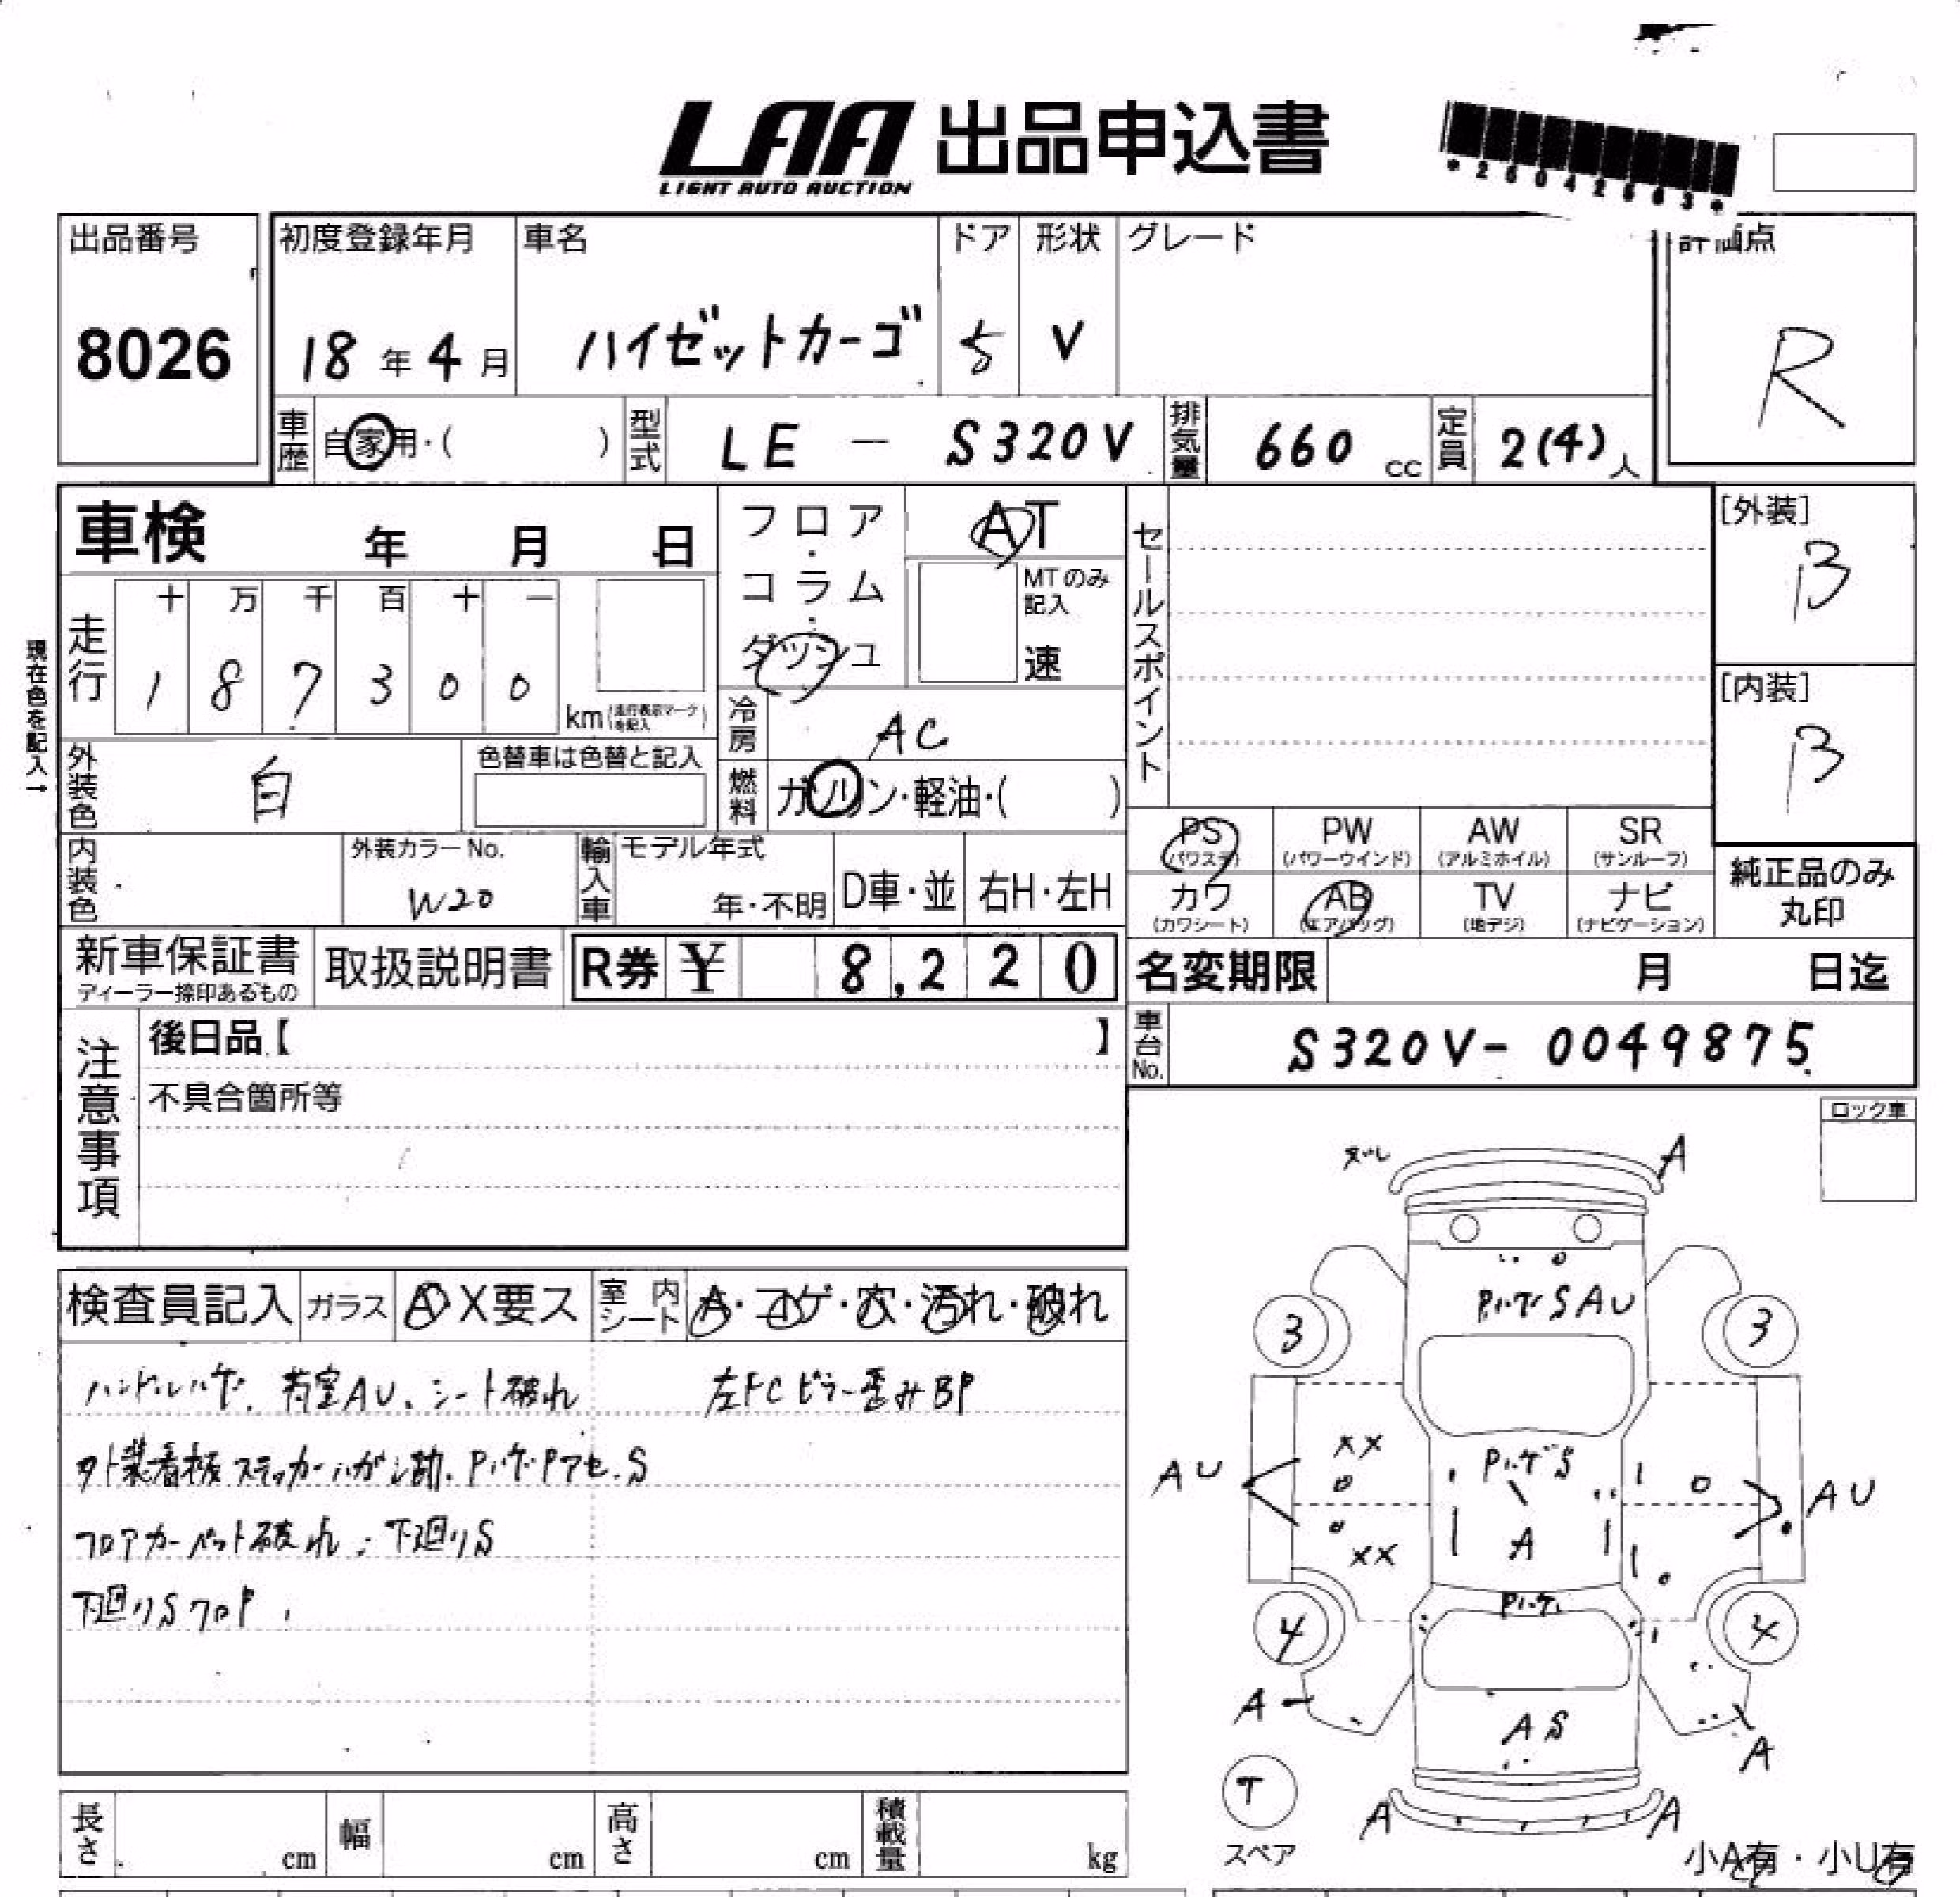 LAA 出品申込書
LIGHT AUTO AUCTION
*25042563*
出品番号
8026
初度登録年月
18年4月
車名
ハイゼットカーゴ
ドア
5
形状
V
グレード
評価点
R
車歴 自家用・( )
型式 LE - S320V
排気量 660 cc
定員 2(4)人
車検 年 月 日
フロア・コラム・ダッシュ
AT
MTのみ記入
速
セールスポイント
[外装]
B
[内装]
B
現在色を記入→
走行
十 万 千 百 十 一
1 8 7 3 0 0 km(走行表示マークを記入)
冷房 AC
外装色 白
色替車は色替と記入
燃料 ガソリン・軽油・( )
PS (パワステ)
PW (パワーウインド)
AW (アルミホイル)
SR (サンルーフ)
カワ (カワシート)
AB (エアバッグ)
TV (地デジ)
ナビ (ナビゲーション)
純正品のみ丸印
内装色
外装カラーNo.
W20
輸入車
モデル年式
年・不明
D車・並
右H・左H
新車保証書
ディーラー捺印あるもの
取扱説明書
R券 ¥ 8,220
名変期限 月 日迄
車台No. S320V-0049875
注意事項
後日品【 】
不具合箇所等
ロック車
検査員記入 ガラス A・X要ス
室内シート A・コゲ・穴・汚れ・破れ
ハンドルハゲ、荷室AU、シート破れ
左FCピラー歪みBP
外装看板ステッカーハガシ跡、Pハゲ・Pアセ、S
フロアカーペット破れ、下廻りS
下廻りSクロP
A
Pハゲ S A U
3
3
XX
Pハゲ S
AU
AU
XX
A
Pハゲ
4
4
A
A S
A
T
スペア
A
A
小A有・小U有
長さ cm
幅 cm
高さ cm
積載量 kg